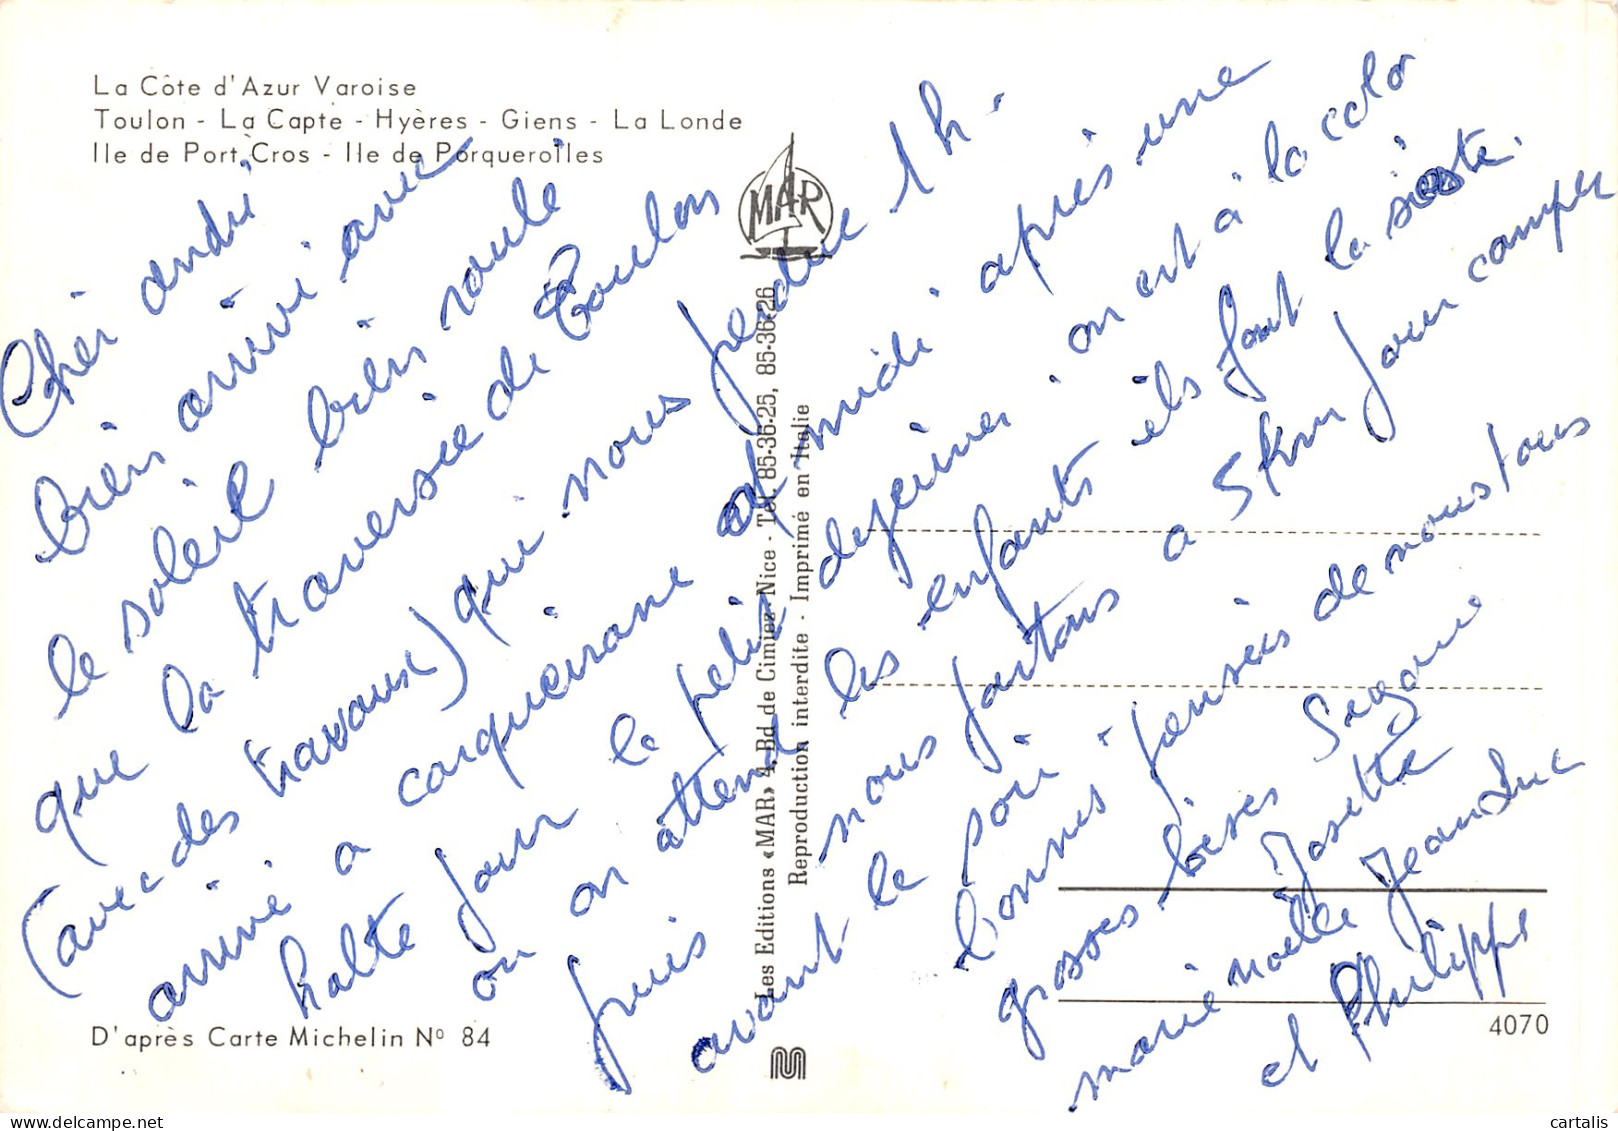 La Côte d'Azur Varoise
Toulon - La Capte - Hyères - Giens - La Londe
Ile de Port Cros - Ile de Porquerolles
MAR
Cher andré
bien arrivé avec
le soleil bien roulé
que la traversée de Toulon
(avec des travaux) qui nous perdue 1h.
arrivé a carqueirane a midi après une
halte pour le petit dejeuner on est à la color
ou on attend les enfants ils font la sieste.
puis nous partons a 5km pour camper
avant le soir.
bonnes pensées de nous tous
grosses bises Segone
Josette
marie noëlle Jean Luc
et Philippe
Les Editions «MAR» 4, Bd de Cimiez - Nice - Tél. 85-36-25, 85-36-26
Reproduction interdite - Imprimé en Italie
D'après Carte Michelin Nº 84
4070
cartalis